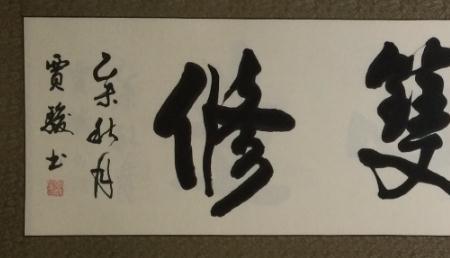 雙修
乙未秋月
賈駿書